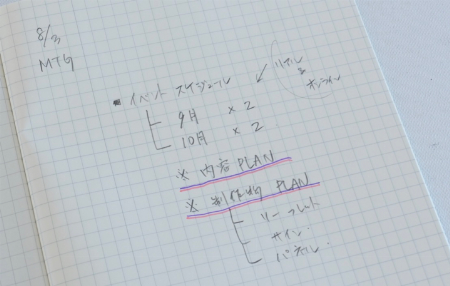 8/3
MTG
■ イベント スケジュール
リアル
&
オンライン
9月 ×2
10月 ×2
※ 内容 PLAN
※ 制作物 PLAN
リーフレット
サイン
パネル